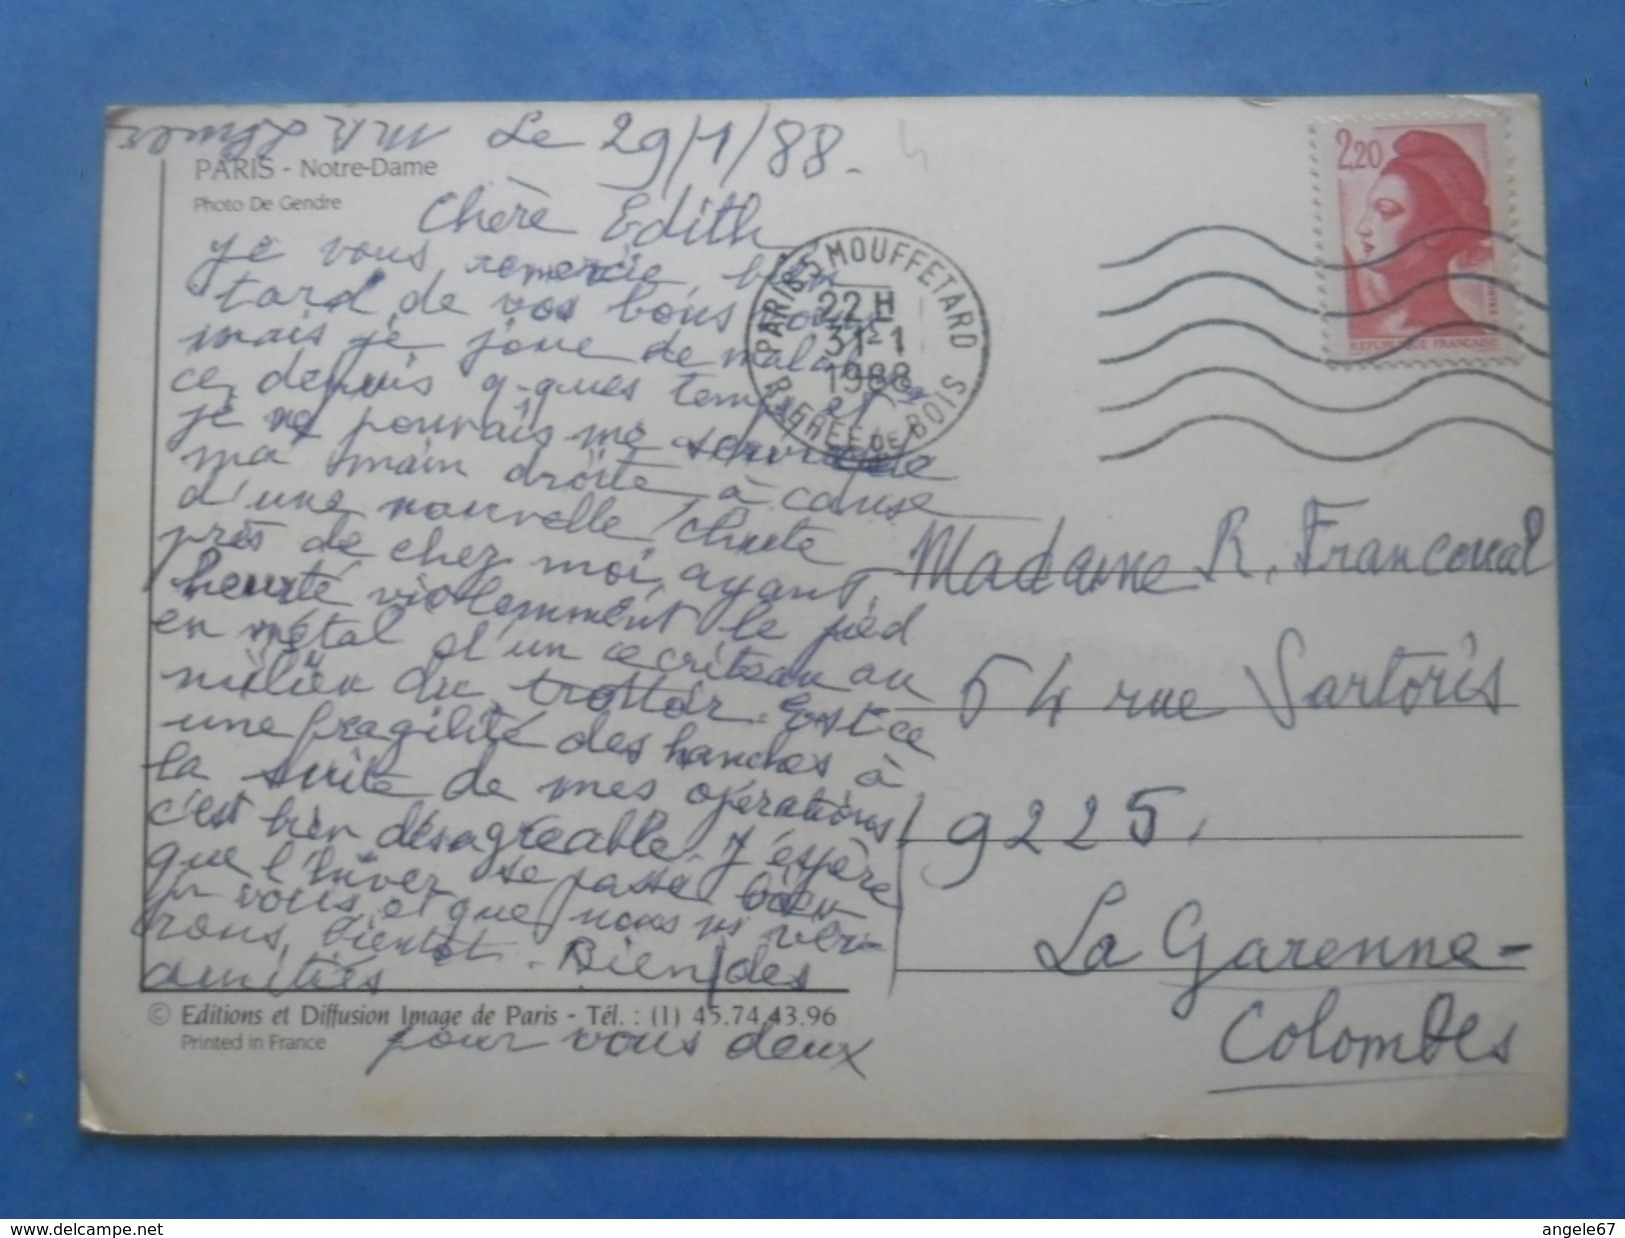 Le 29/1/88.
PARIS - Notre-Dame
Photo De Gendre
Chère Edith
je vous remercie bien
tard de vos bons voeux
mais je joue de malchan
ce, depuis q-ques temps et
je ne pouvais me servir de
ma main droite, à cause
d'une nouvelle chute
près de chez moi, ayant
heurté violemment le pied
en métal d'un écriteau au
milieu du trottoir. Est-ce
une fragilité des hanches à
la suite de mes opérations,
c'est bien désagréable. J'espère
que l'hiver se passe bien
pr vous, et que nous ns ver-
rons, bientôt. Bien des
amitiés
pour vous deux
© Editions et Diffusion Image de Paris - Tél. : (1) 45.74.43.96
Printed in France
PARIS MOUFFETARD
22 H
31-1
1988
R. GREE DE BOIS
2,20
POSTES
REPUBLIQUE FRANCAISE
Madame R. Francoual
54 rue Sartoris
92250
La Garenne-
Colombes
www.delcampe.net
angele67